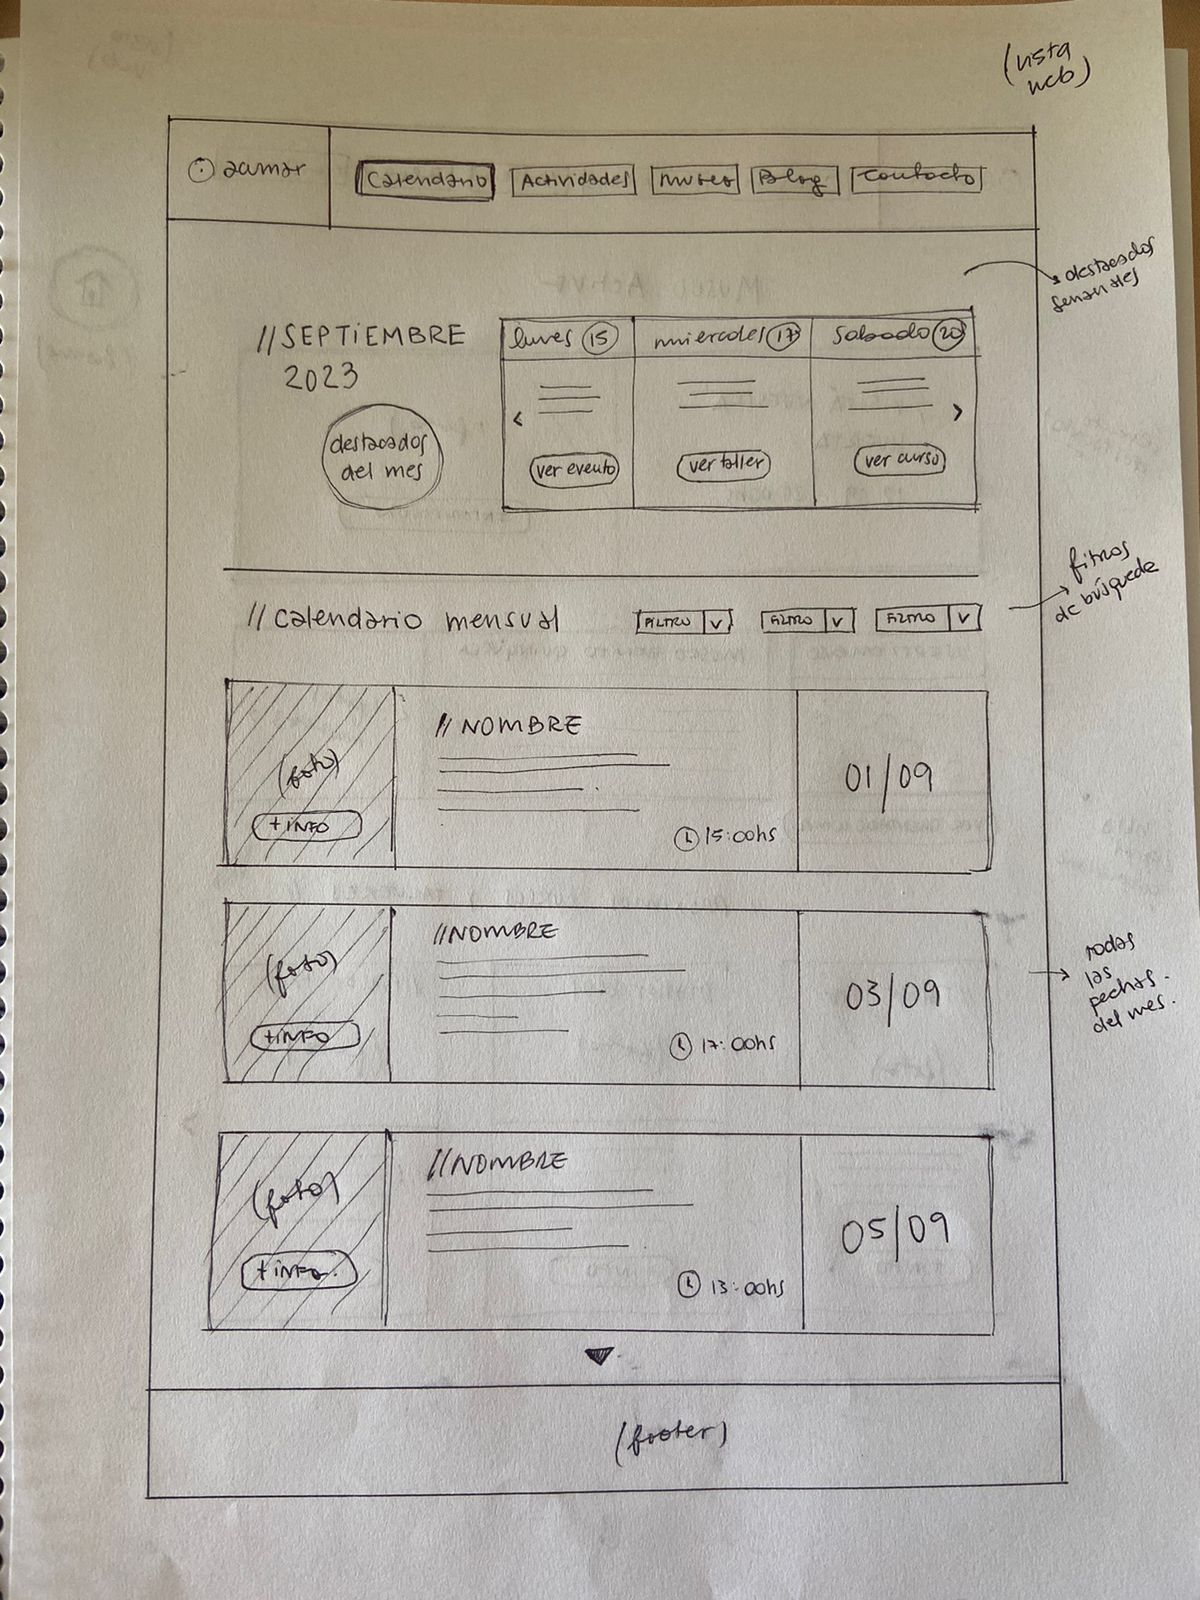 (vista
web)
acumar
Calendario
Actividades
Museo
Blog
Contacto
destacados
semanales
//SEPTIEMBRE
2023
destacados
del mes
lunes 15
miercoles 17
sabado 20
<
>
ver evento
ver taller
ver curso
filtros
de búsqueda
//Calendario mensual
FILTRO V
FILTRO V
FILTRO V
(foto)
+INFO
//NOMBRE
15:00hs
01/09
(foto)
+INFO
//NOMBRE
17:00hs
03/09
todas
las
fechas
del mes.
(foto)
+INFO
//NOMBRE
13:00hs
05/09
(footer)